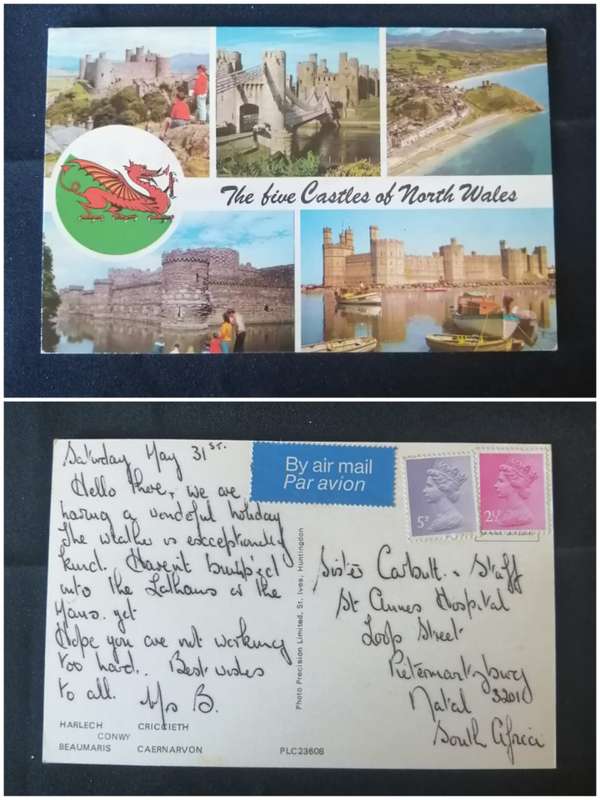 The five Castles of North Wales
Saturday May 31ST.
Hello there, we are
having a wonderful holiday
The weather is exceptionally
kind. Havent bumped
into the Lathams or the
Mans. yet
Hope you are not working
too hard. Best wishes
to all. Mrs B.
HARLECH CRICCIETH
CONWY
BEAUMARIS CAERNARVON
By air mail
Par avion
Photo Precision Limited, St. Ives, Huntingdon
PLC23608
5P
2½
Sister Carbutt. Staff
St Annes Hospital
Loop Street
Pietermaritzburg
Natal 3201
South Africa